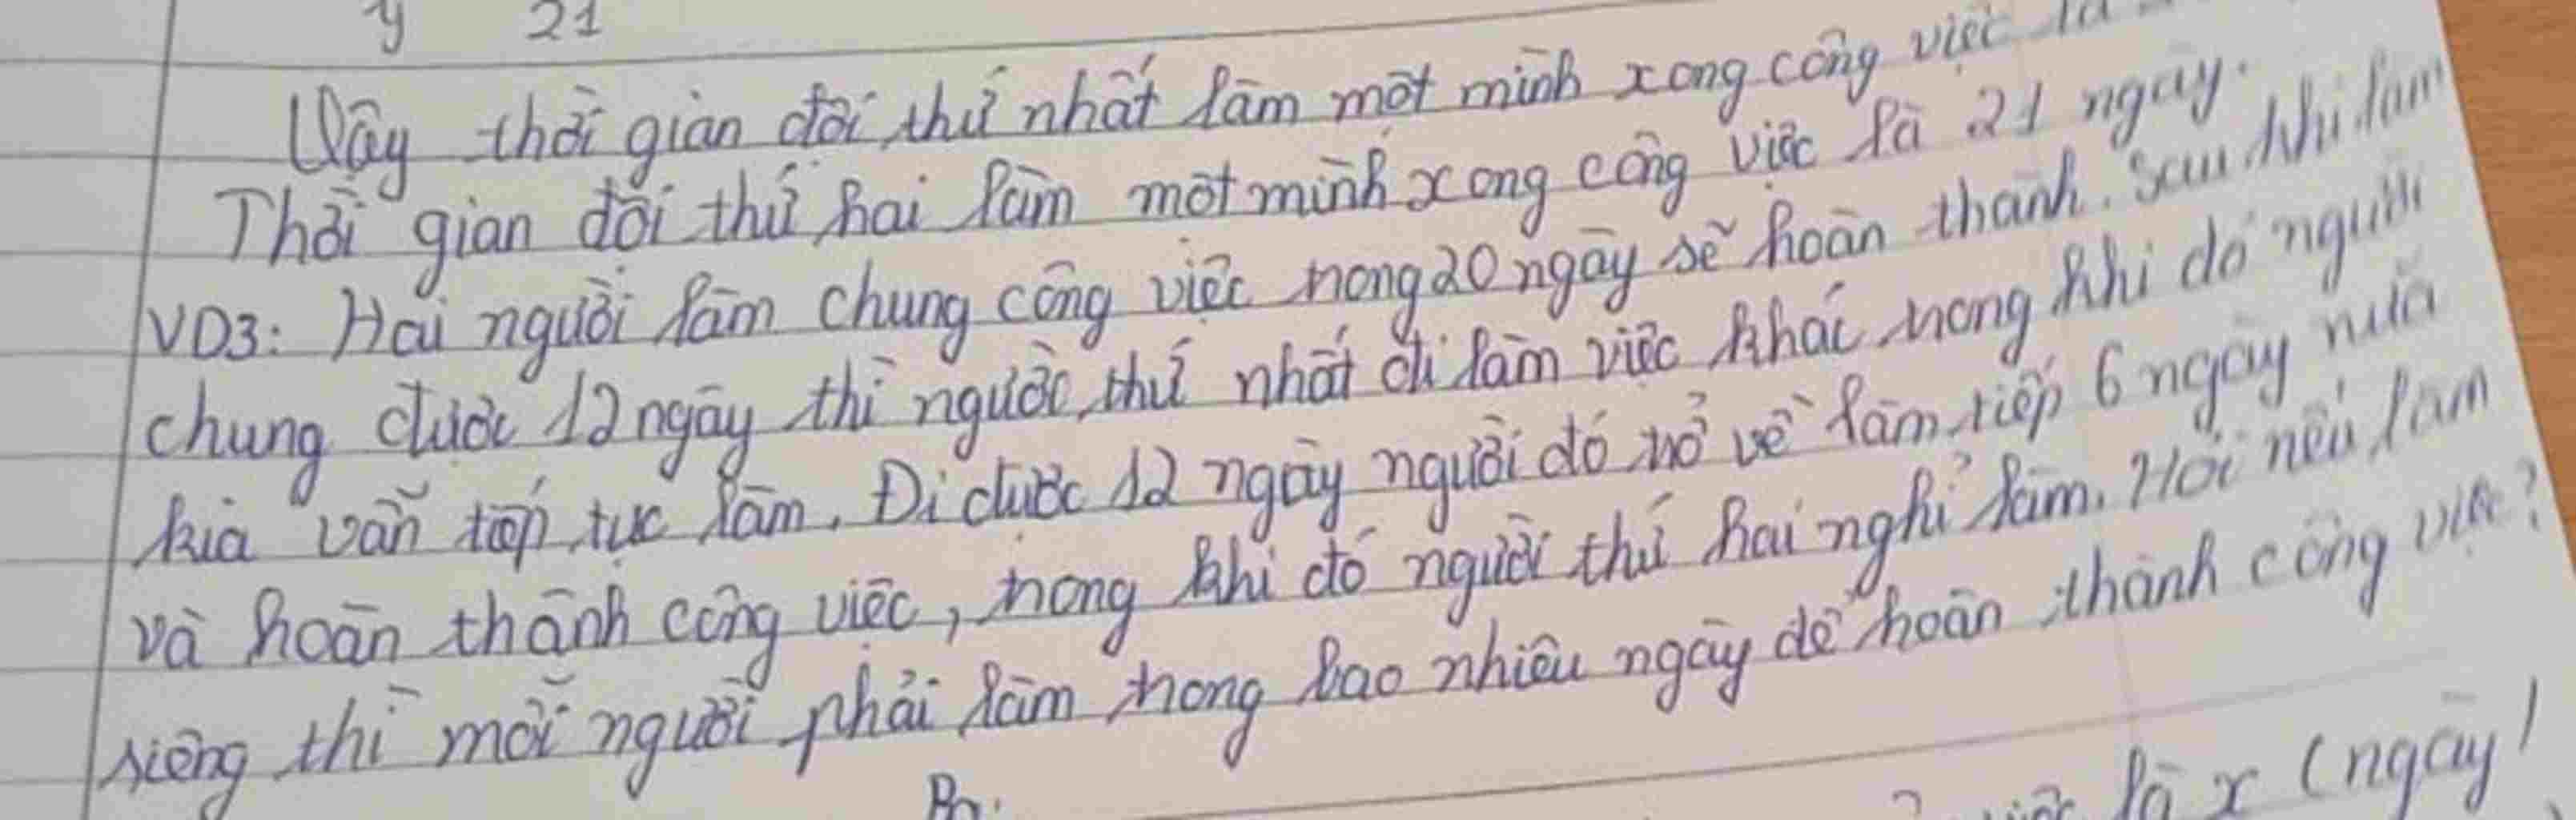 y 21
Vậy thời gian đội thứ nhất làm một mình xong công việc là
Thời gian đội thứ hai làm một mình xong công việc là 21 ngày.
VD3: Hai người làm chung công việc trong 20 ngày sẽ hoàn thành. Sau khi làm
chung được 12 ngày thì người thứ nhất đi làm việc khác trong khi đó người
kia vẫn tiếp tục làm. Đi được 12 ngày người đó trở về làm tiếp 6 ngày nữa
và hoàn thành công việc, trong khi đó người thứ hai nghỉ làm. Hỏi nếu làm
riêng thì mỗi người phải làm trong bao nhiêu ngày để hoàn thành công việc?
là x (ngày)